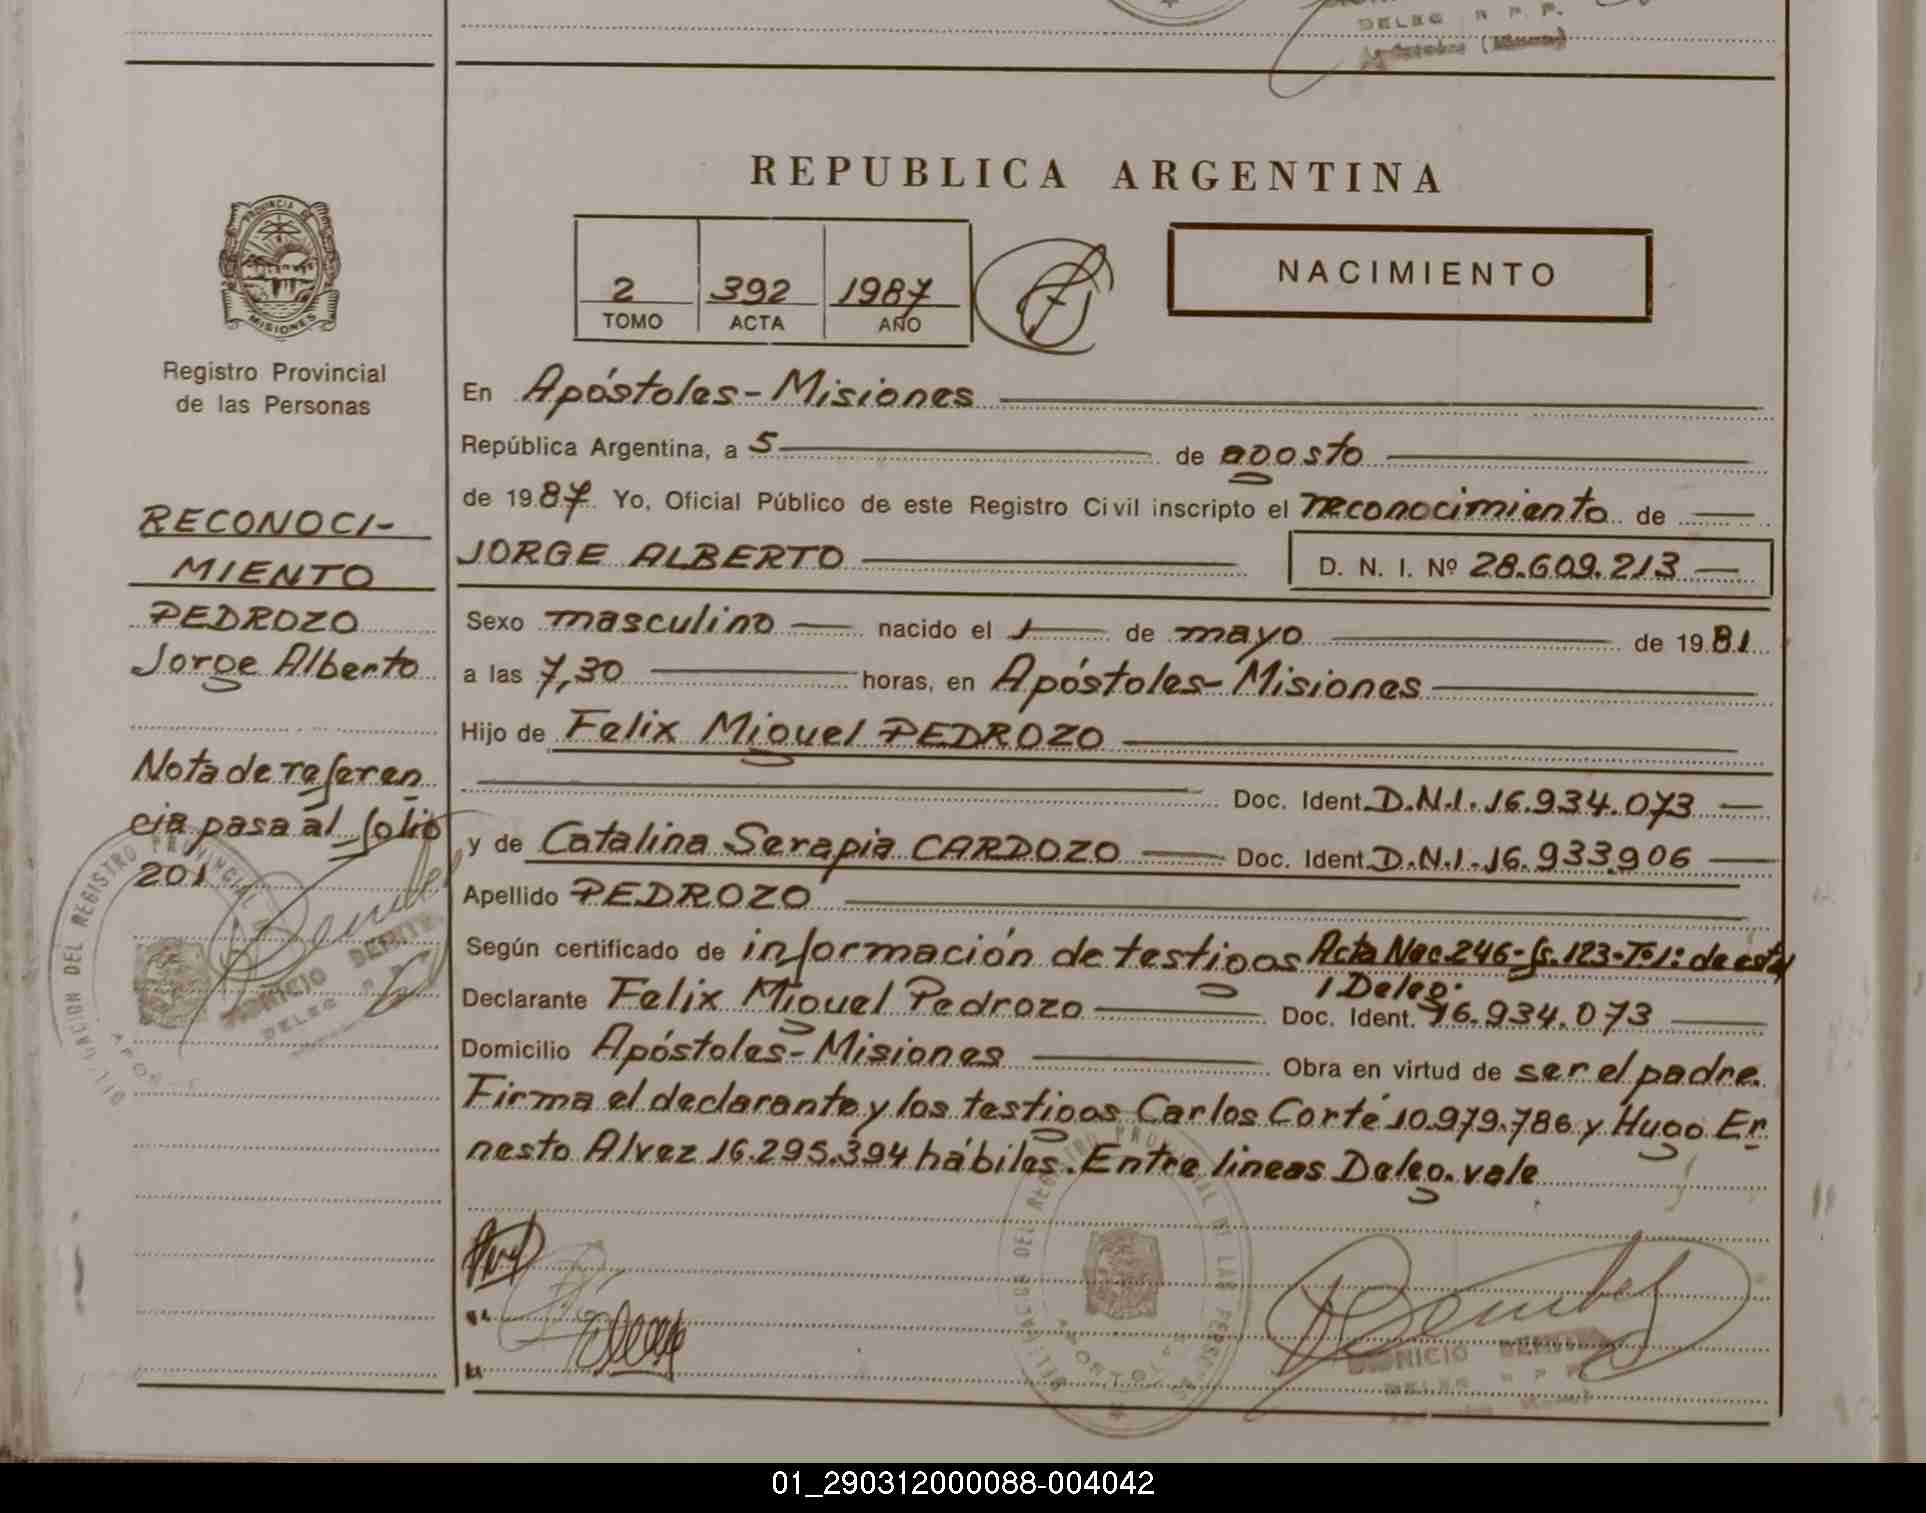 DELEG R P P.
REPUBLICA ARGENTINA
PROVINCIA DE
MISIONES
Registro Provincial
de las Personas
2 392 1987
TOMO ACTA AÑO
NACIMIENTO
En Apóstoles-Misiones
República Argentina, a 5 de agosto
de 1987 Yo, Oficial Público de este Registro Civil inscripto el reconocimiento de
JORGE ALBERTO D. N. I. Nº 28.609.213
Sexo masculino nacido el 1 de mayo de 1981
a las 7,30 horas, en Apóstoles-Misiones
Hijo de Felix Miguel PEDROZO
Doc. Ident. D.N.I. 16.934.073
y de Catalina Serapia CARDOZO Doc. Ident. D.N.I. 16.933.906
Apellido PEDROZO
Según certificado de información de testigos Acta Nac. 246-fs.123-Tº1: de esta
Deleg.
Declarante Felix Miguel Pedrozo Doc. Ident. 16.934.073
Domicilio Apóstoles-Misiones Obra en virtud de ser el padre.
Firma el declarante y los testigos Carlos Corté 10.979.786 y Hugo Er
nesto Alvez 16.295.394 hábiles. Entre lineas Deleg. vale
RECONOCI-
MIENTO
PEDROZO
Jorge Alberto
Nota de referen
cia pasa al folio
201
DEL REGISTRO PROVINCIAL
DELEG R P
DEL REGISTRO PROVINCIAL DE LAS PERSONAS
DIONICIO BENITEZ
DELEG R P P
01_290312000088-004042